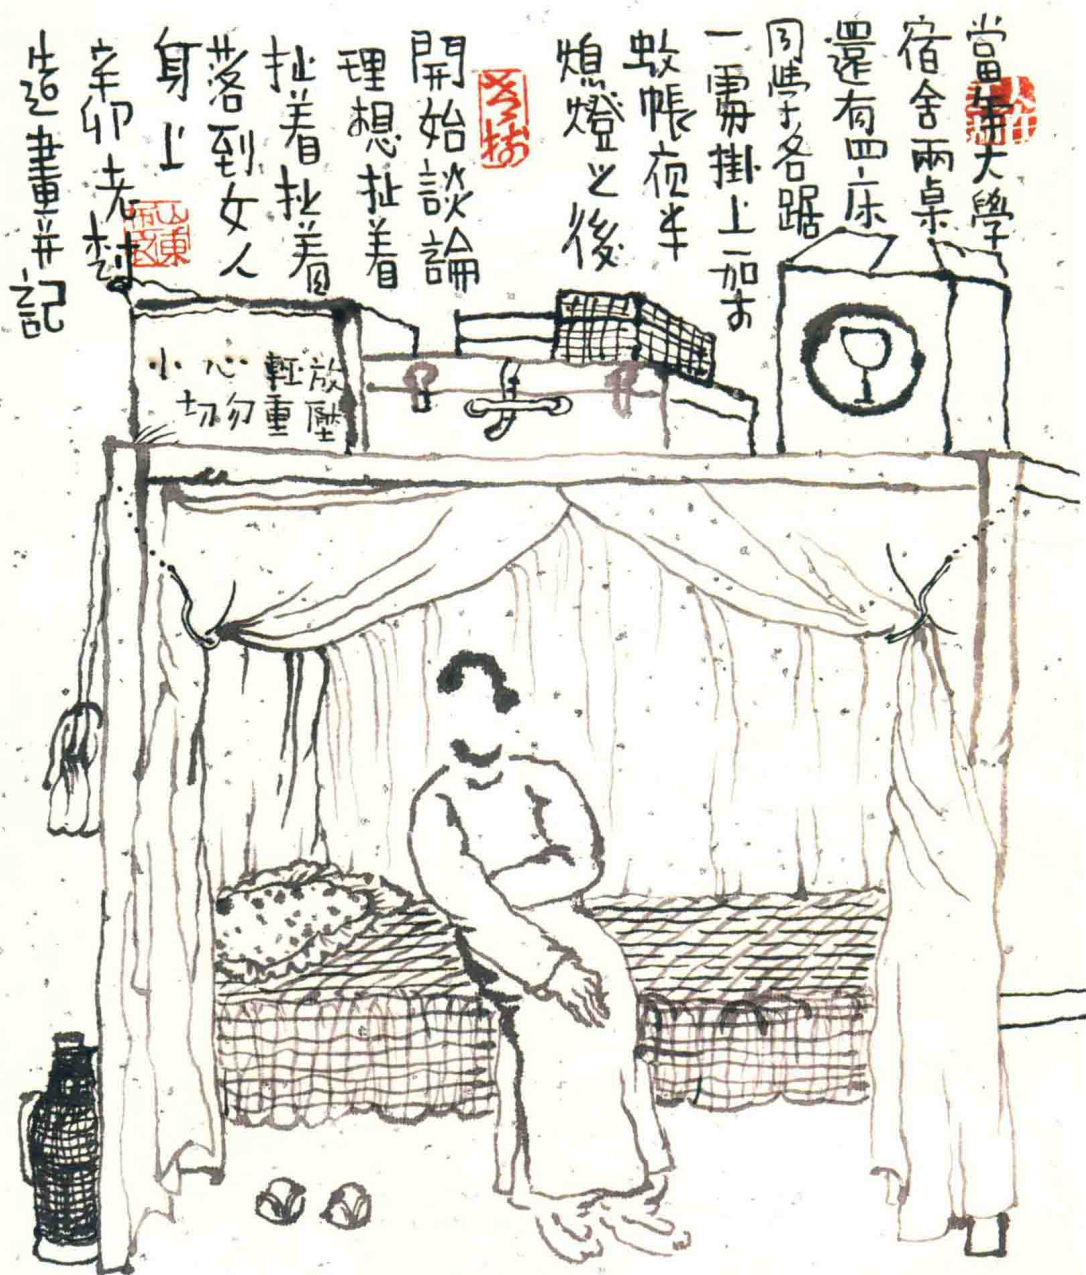 當年大學
宿舍兩桌
還有四床
同學各踞
一雰掛上一加才
蚊帳夜半
熄燈之後
開始談論
理想扯着
扯着扯着
落到女人
身上
辛卯老村
造畫并記
老村
山東
小心輕放
切勿重壓